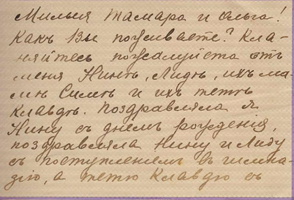 Милыя Тамара и Ольга!
Какъ Вы поживаете? Кла-
няйтесь пожалуйста отъ
меня Нинѣ, Лидѣ, ихъ ма-
мѣ Симѣ и ихъ тетѣ
Клавдѣ. Поздравляла я
Нину съ днемъ рожденія,
поздравляла Нину и Лиду
съ поступленіемъ въ гимна-
зію, а тетю Клавдю съ